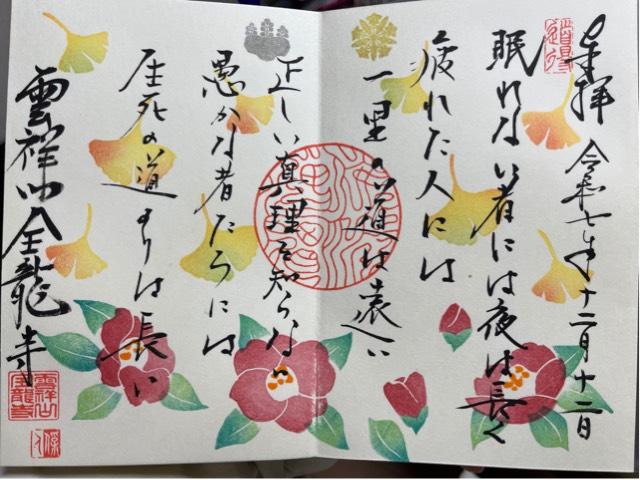 奉拝 令和七年十二月十二日
眠れない者には夜は長く
疲れた人には
一里の道は遠い
正しい真理を知らない
愚かな者たちには
生死の道のりは長い
雲祥山 全龍寺